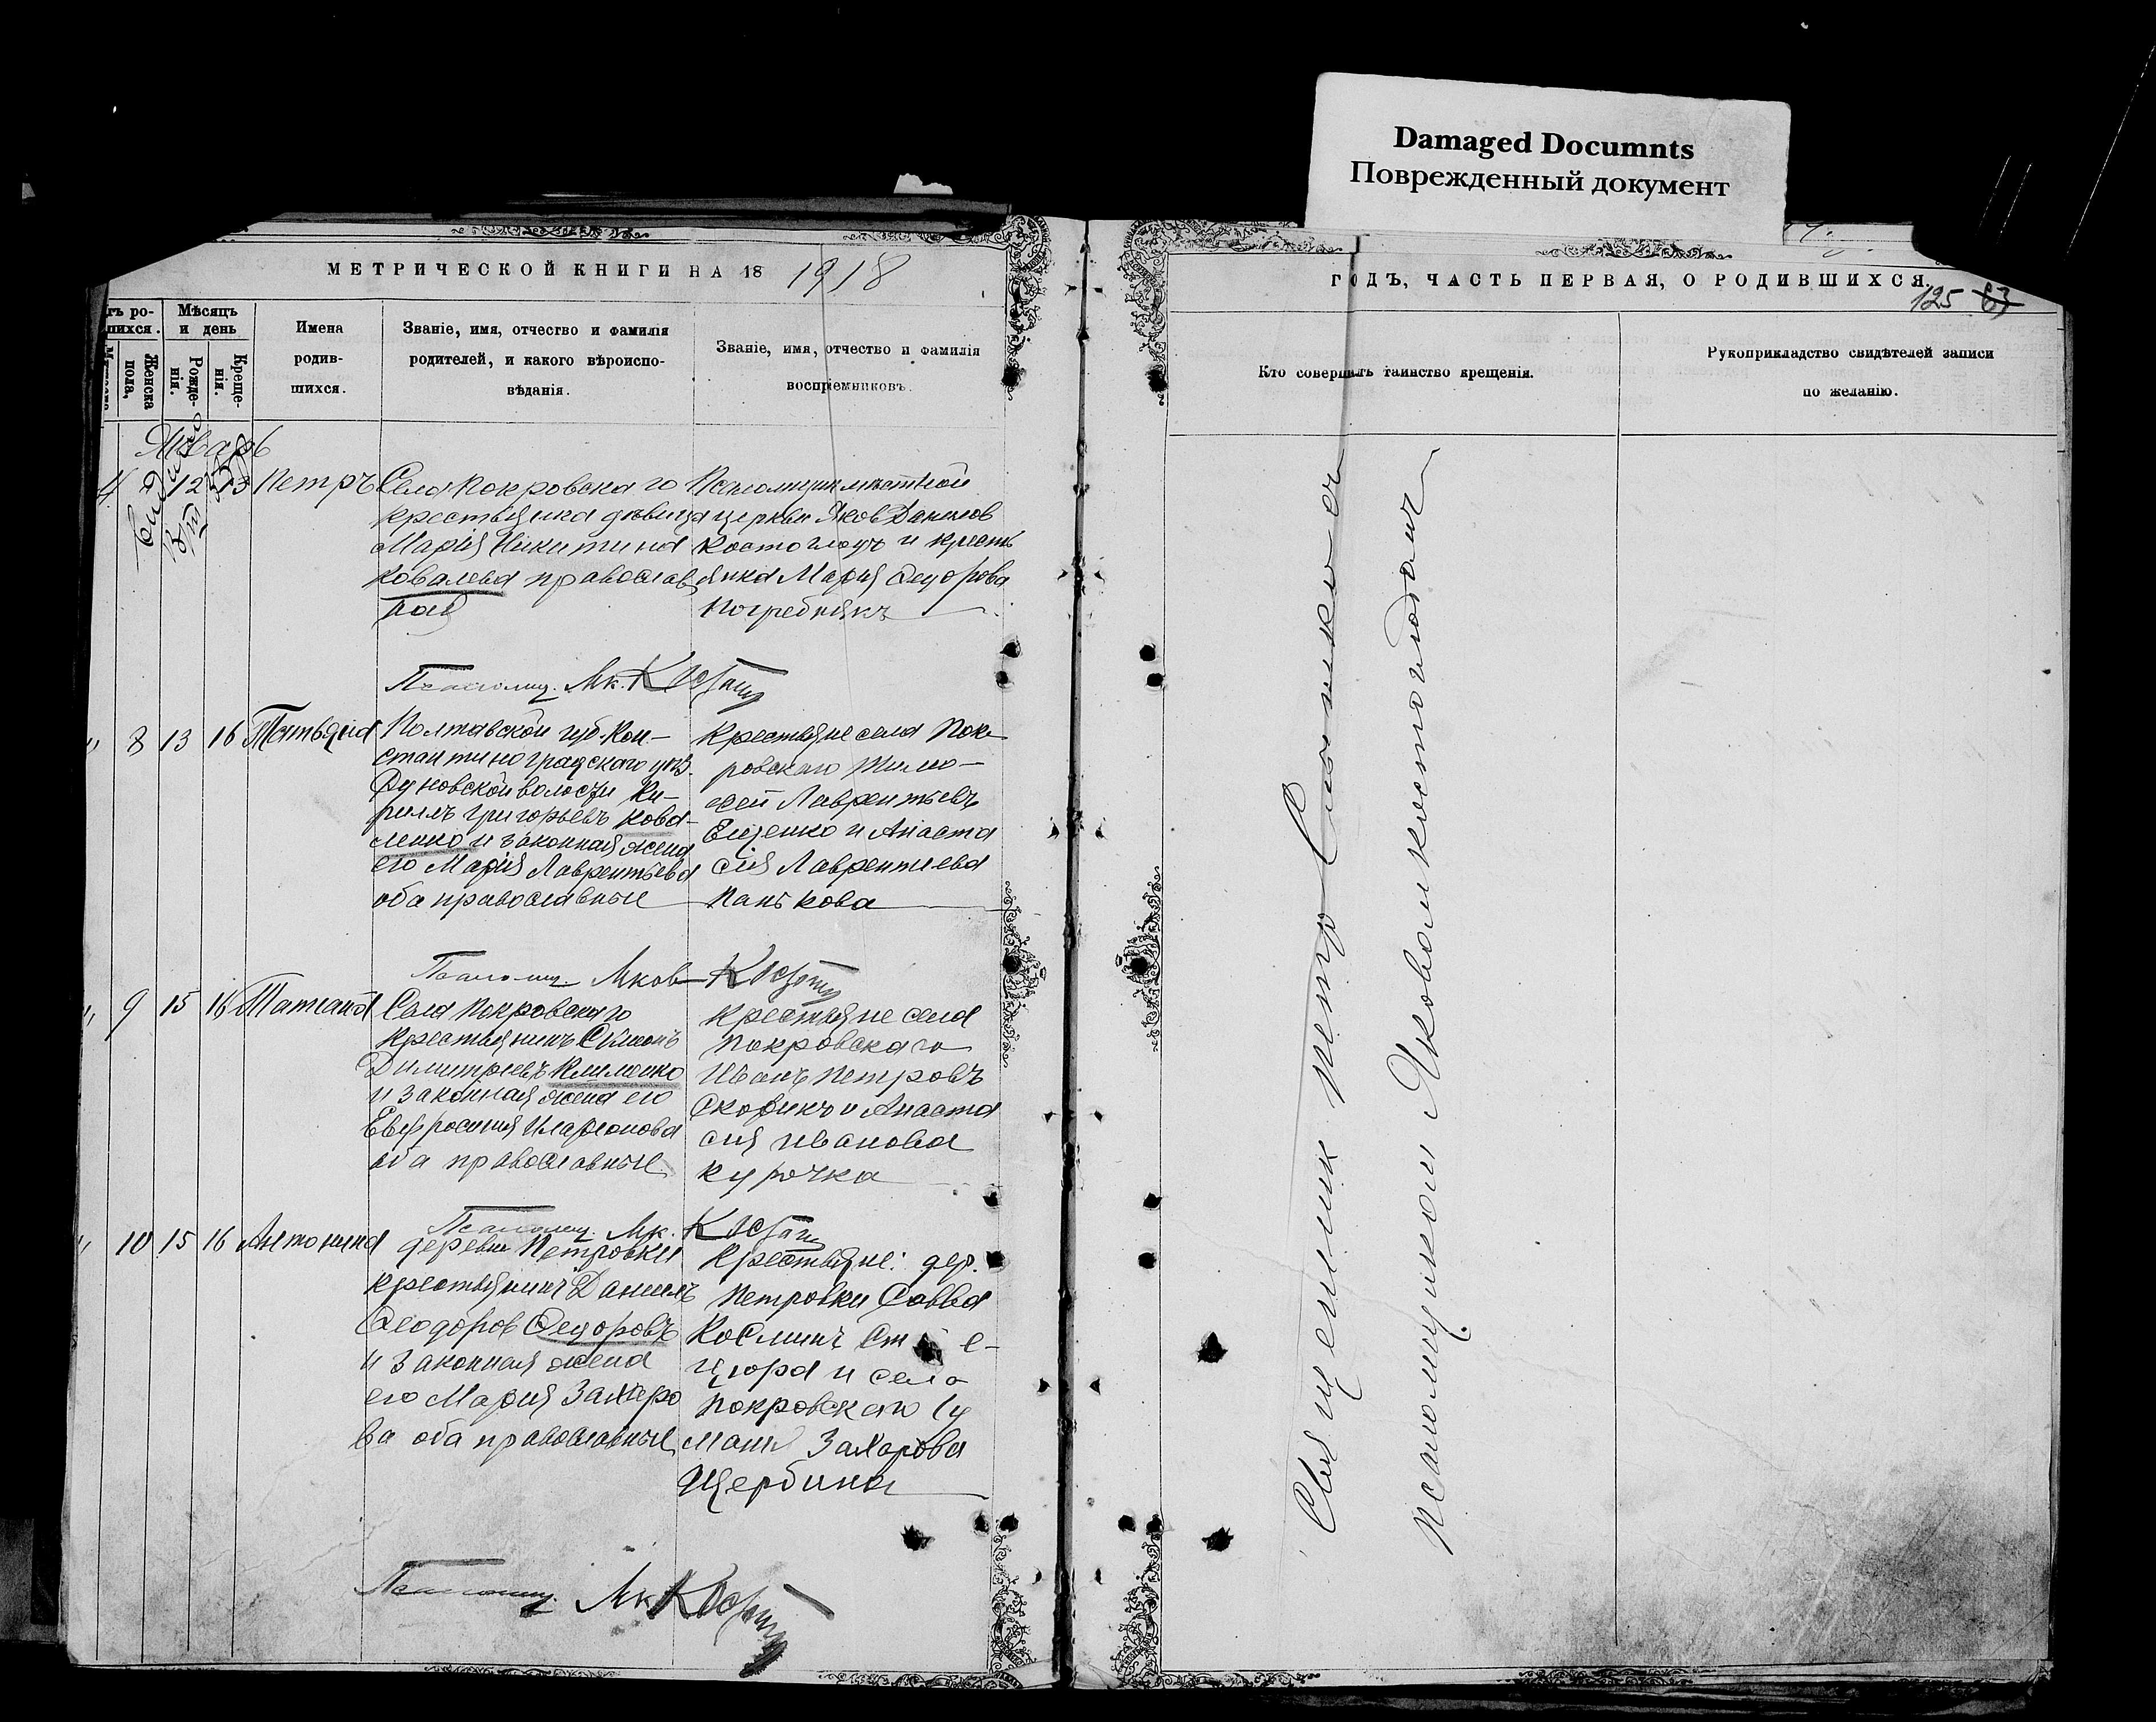 Damaged Documnts
Поврежденный документ
МЕТРИЧЕСКОЙ КНИГИ НА 18 1918
ГОДЪ, ЧАСТЬ ПЕРВАЯ, О РОДИВШИХСЯ.
125 63
Мѣсяцъ
и день
Женска
пола,
Рожде-
нія.
Креще-
нія.
Имена
родив-
шихся.
Званіе, имя, отчество и фамилія
родителей, и какого вѣроиспо-
вѣданія.
Званіе, имя, отчество и фамилія
воспріемниковъ.
Кто совершалъ таинство крещенія.
Рукоприкладство свидѣтелей записи
по желанію.
Январь
4 12 13 Петръ
Села Покровскаго
крестьянка дѣвица
Марія Никитина
Ковалева православ
ная
Псаломщик мѣстной
церкви Яков Данилов
Костоглодъ и кресть
янка Марія Ѳедорова
Погребнякъ
Псаломщ. Як.
" 8 13 16 Татьяна
Полтавской губ. Кон-
стантиноградского уѣз.
волости Ки-
риллъ Григорьевъ Кова-
ленко и законная жена
его Марія Лаврентьева
оба православные
Крестьяне села Пок-
ровскаго Тимо-
фей Лаврентьевъ
Ещенко и Анаста
сія Лаврентиева
Панькова
Псаломщ. Яков
" 9 15 16 Татиана
Села Покровскаго
крестьянинъ Симонъ
Димитріевъ Клименко
и законная жена его
Евфросинія Иларионова
оба православные
Крестьяне села
Покровскаго
Иванъ Петровъ
Скофикъ и Анаста
сия Иванова
Курочка
Псаломщ. Як.
" 10 15 16 Антонина
деревни Петровки
крестьянинъ Даниилъ
Ѳеодоров Ѳедоровъ
и законная жена
его Мария Захаро
ва оба православные
Крестьяне: дер.
Петровки Савва
Косминъ
и села
Покровскаго
Захарова
Щербина
Псаломщ. Як
Священник Петр
Псаломщиком Яковом Костоглодом